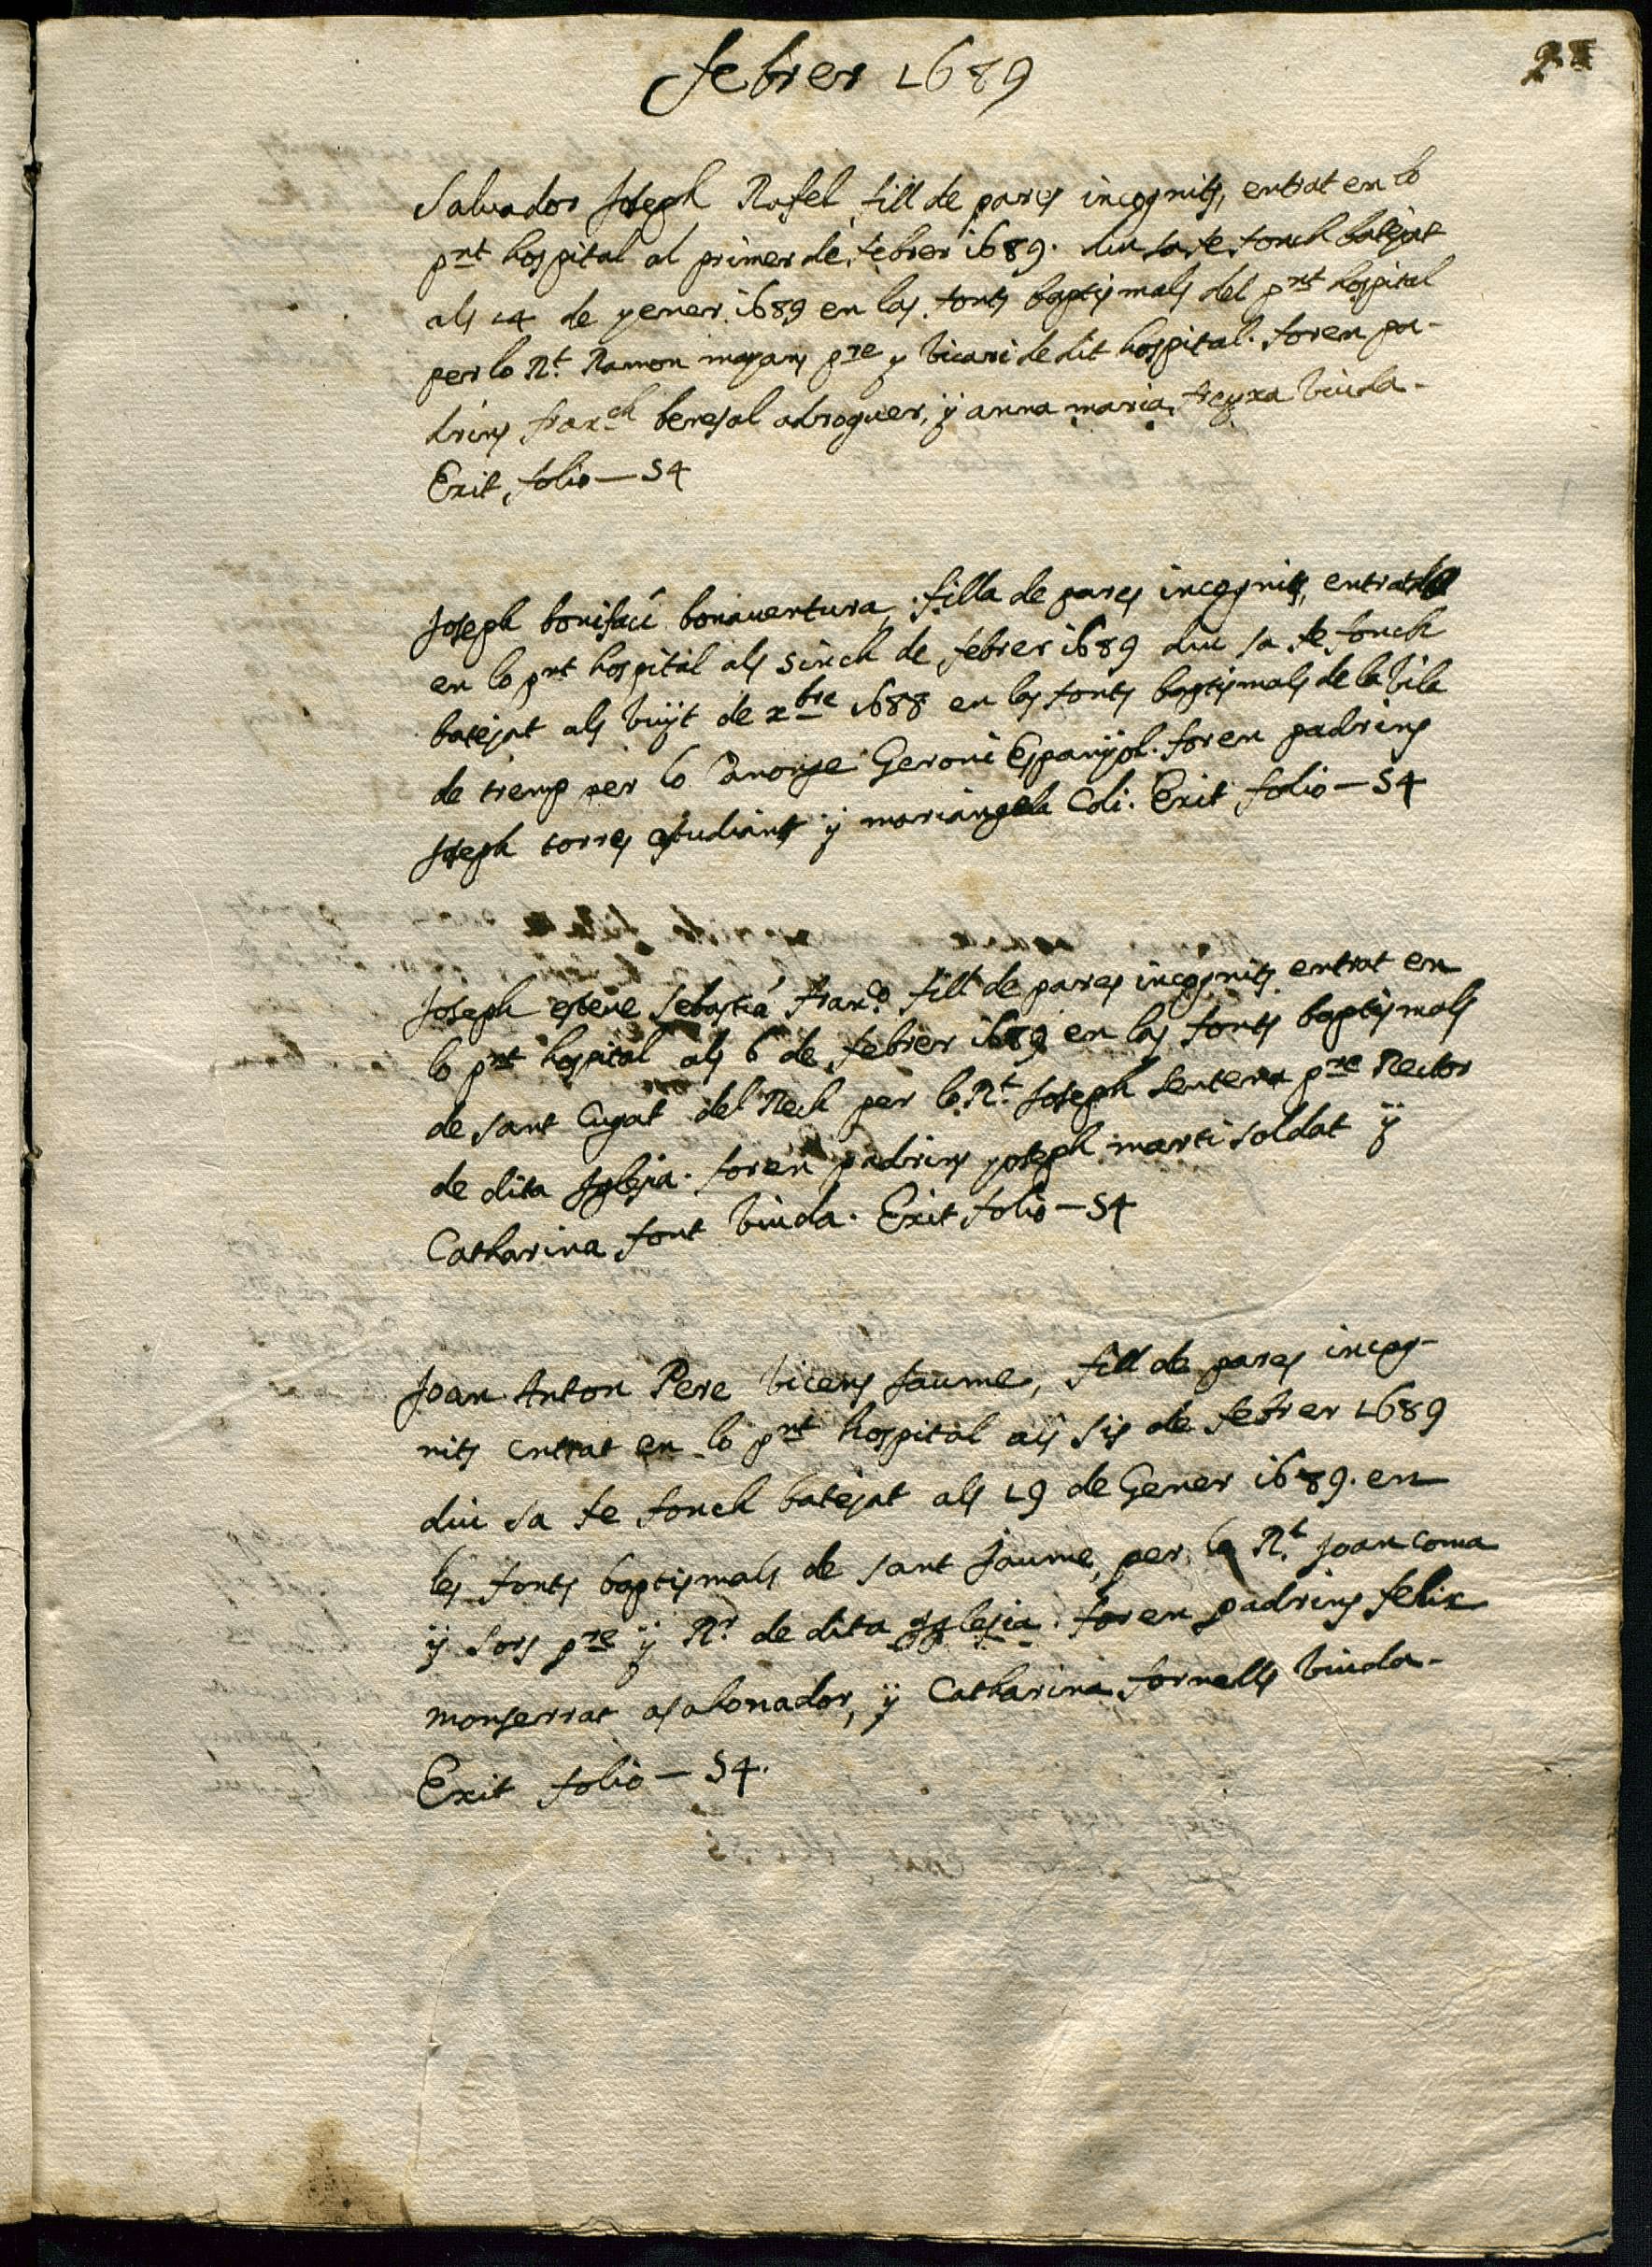 febrer 1689
Salvador Joseph Rafel fill de pares incognits, entrat en lo
pnt hospital al primer de febrer 1689. diu sa fe fonch batejat
als 14 de yener 1689 en las fonts baptismals del pnt hospital
per lo Rt. Ramon mayans pre y vicari de dit hospital. foren pa-
drins franch beresal adroguer, ÿ anna maria treyxa viuda.
Exit folio — 54
Joseph bonifaci bonaventura, filla de pares incognits, entrat
en lo pnt hospital als sinch de febrer 1689 diu sa fe fonch
batejat als vuÿt de xbre 1688 en las fonts baptismals de la vila
de tremp per lo Canonge Geroni Espanÿol. foren padrins
Joseph torres estudiant ÿ mariangela Coli. Exit folio — 54
Joseph esteve Sebastiá Franco. fill de pares incognits entrat en
lo pnt hospital als 6 de febrer 1689 en las fonts baptismals
de sant Cugat del Rech per lo Rt. Joseph sentena pre Rector
de dita Iglesia. foren padrins yoseph marti soldat ÿ
Catharina font viuda. Exit folio — 54
Joan Anton Pere vicens Jaume, fill de pares incog-
nits entrat en lo pnt hospital als sis de febrer 1689
diu sa fe fonch batejat als 19 de Gener 1689. en
les fonts baptismals de sant Jaume, per lo Rt. Joan coma
ÿ sors pre ÿ Rr. de dita Iglesia. foren padrins felix
monserrat asahonador, ÿ Catharina fornells viuda.
Exit folio — 54.